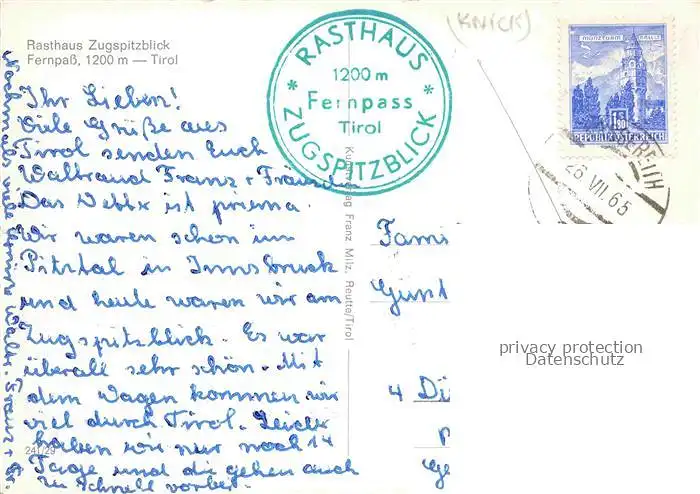 Rasthaus Zugspitzblick
Fernpaß, 1200 m — Tirol
Ihr Lieben!
Viele Grüße aus
Tirol senden Euch
Waltraud Franz +
Das Wetter ist prima.
Wir waren schon im
Pitztal in Innsbruck
und heute waren wir am
Zugspitzblick. Es war
überall sehr schön. Mit
dem Wagen kommen wir
viel durch Tirol. Leider
haben wir nur noch 14
Tage und die gehen auch
zu schnell vorbei.
241/29
Nochmals viele Grüße Waltr. Franz +
* RASTHAUS *
1200 m
Fernpass
Tirol
ZUGSPITZBLICK
Kunstverlag Franz Milz, Reutte/Tirol
(KNICK)
MÜNZTURM HALL i.
1.80
REPUBLIK ÖSTERREICH
26 VII. 65
Fami
Günt
4 Di
privacy protection
Datenschutz